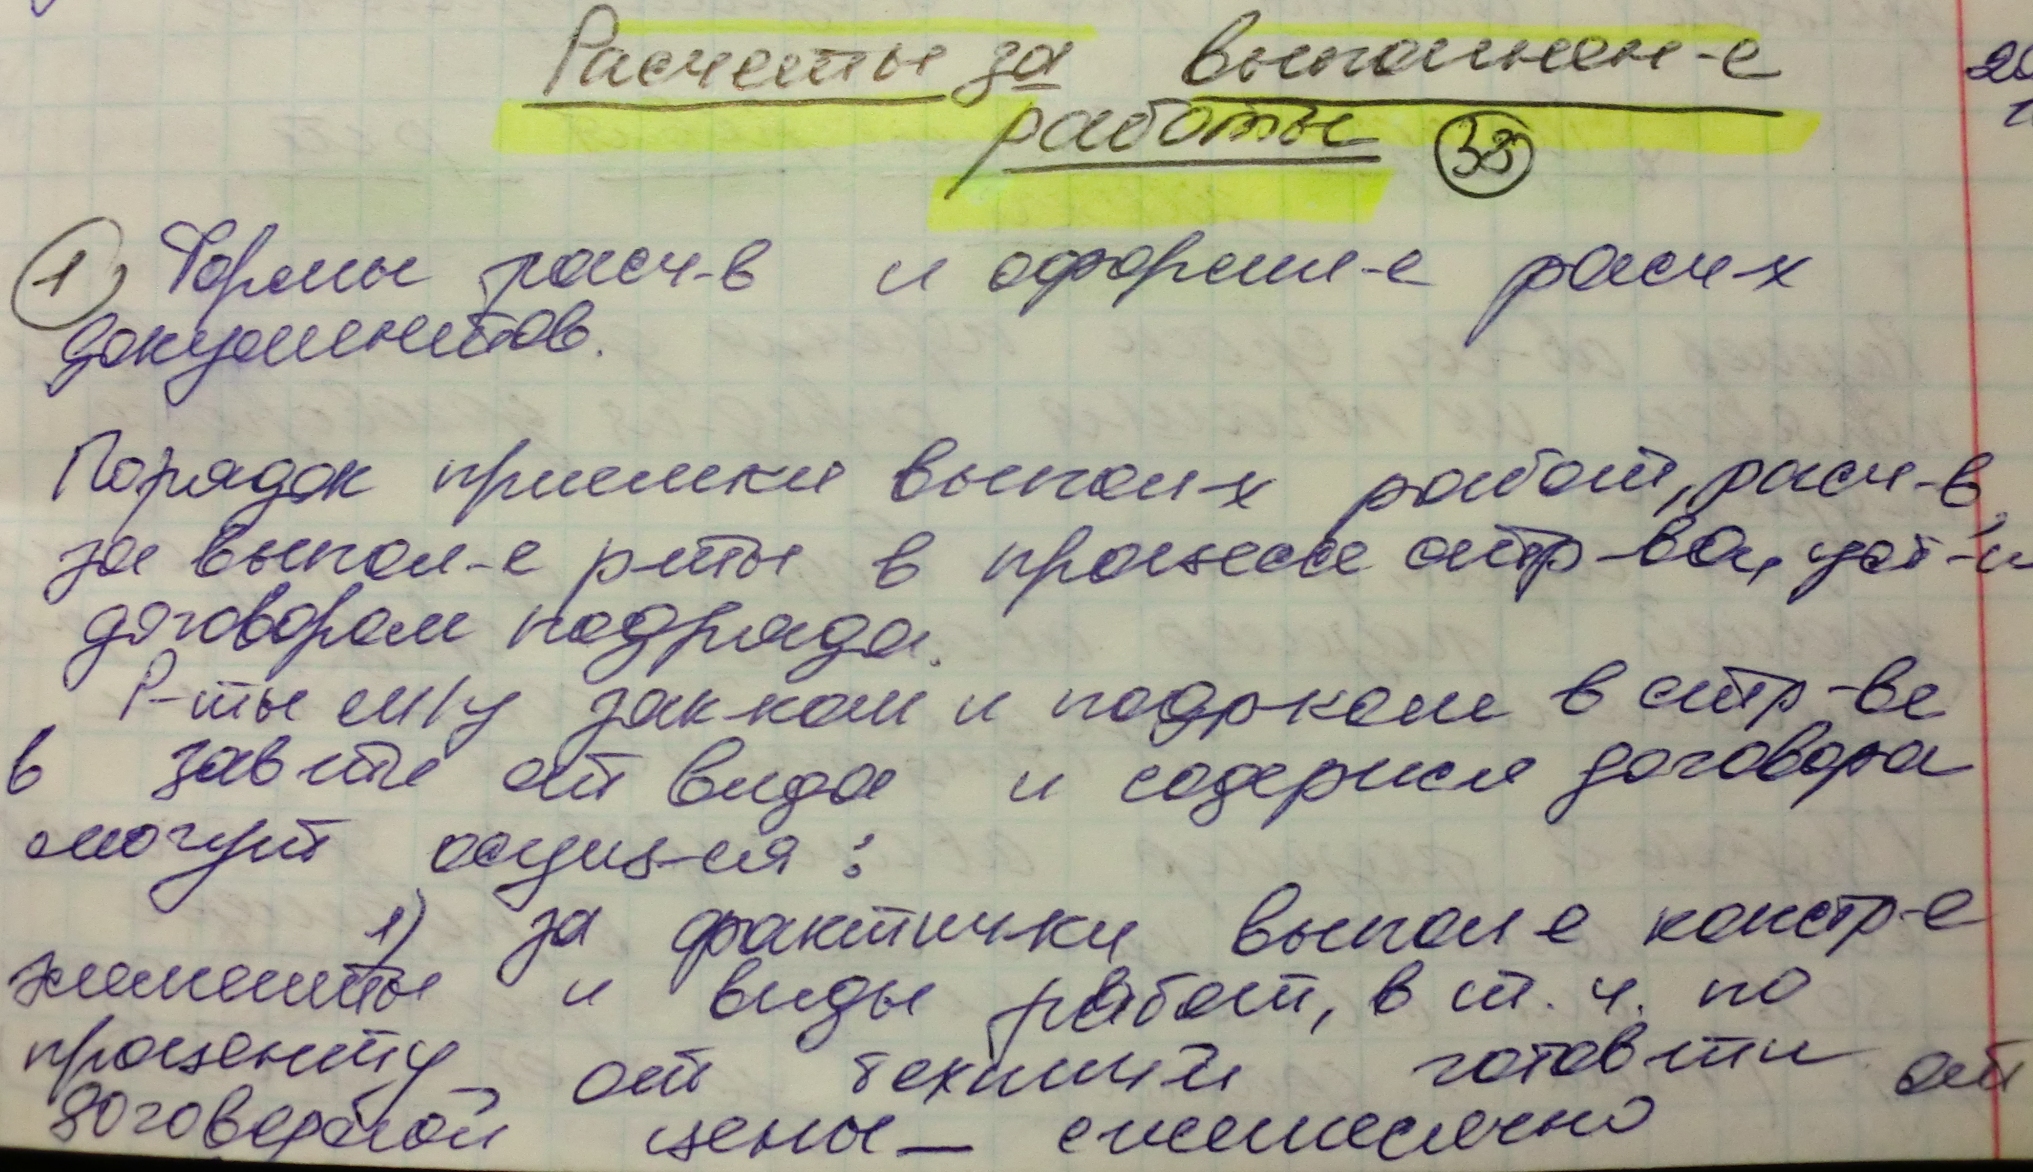 Расчеты за выполнен-е
работы 33
1, Формы расч-в и оформл-е расч-х
документов.
Порядок приемки выпол-х работ, расч-в
за выпол-е р-ты в процессе стр-ва, уст-н
договором подряда.
Р-ты м/у зак-ком и подр-ком в стр-ве
в зав-сти от вида и содерж-я договора
могут осущ-ся:
1) за фактич-ки выпол-е констр-е
элементы и виды работ, в т. ч. по
проценту от технич-й готов-сти от
договорной цены – ежемесячно